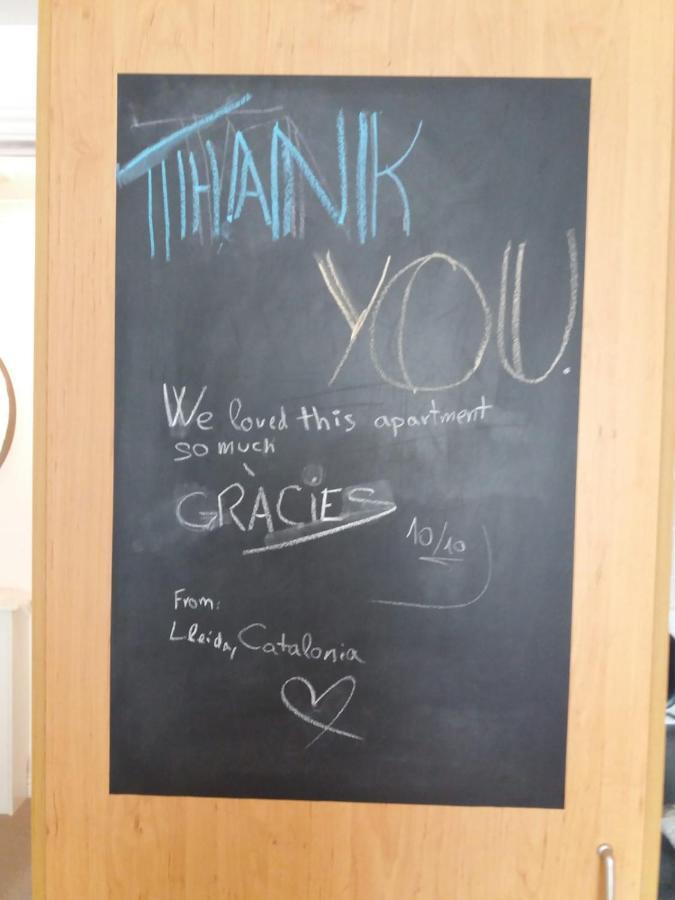 THANK
YOU.
We loved this apartment
so much
GRÀCIES
10/10
From:
Lleida, Catalonia